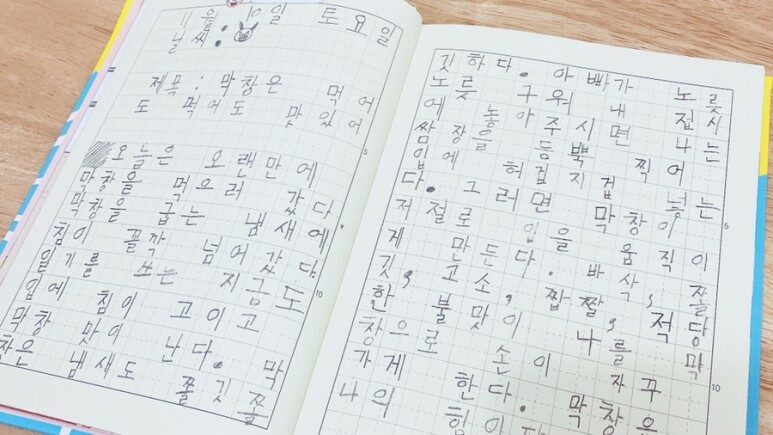 11월 10일 토요일
날씨:
제목: 막창은 먹어
도 먹어도 맛있어
오늘은 오랜만에
막창을 먹으러 갔다.
막창을 굽는 냄새에
침이 꼴깍 넘어갔다.
일기를 쓰는 지금도
입에 침이 고이고
막창 맛이 난다. 막
창은 냄새도 쫄깃쫄
깃하다. 아빠가 노릇
노릇 구워 내 접시
에 놓아 주시면 나는
쌈장을 듬뿍 찍어
입에 허겁지겁 넣는
다. 그러면 막창이
저절로 입을 움직이
게 만든다. 바삭, 쫄
깃, 고소, 짭짤, 적당
한 불맛이 나를 막
창으로 손이 자꾸
가게 한다. 막창은
나의 힘이다.
5
10
5
10